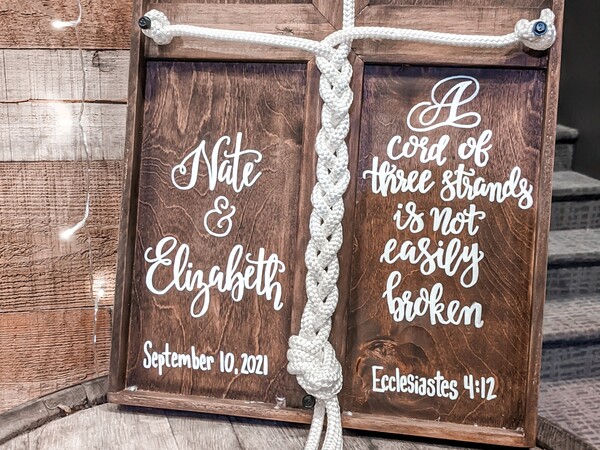 Nate
&
Elizabeth
September 10, 2021
A
cord of
three strands
is not
easily
broken
Ecclesiastes 4:12